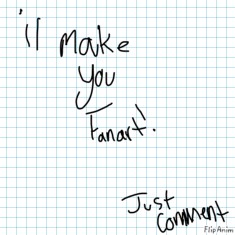 'll make
you
Fanart!
Just
comment
FlipAnim